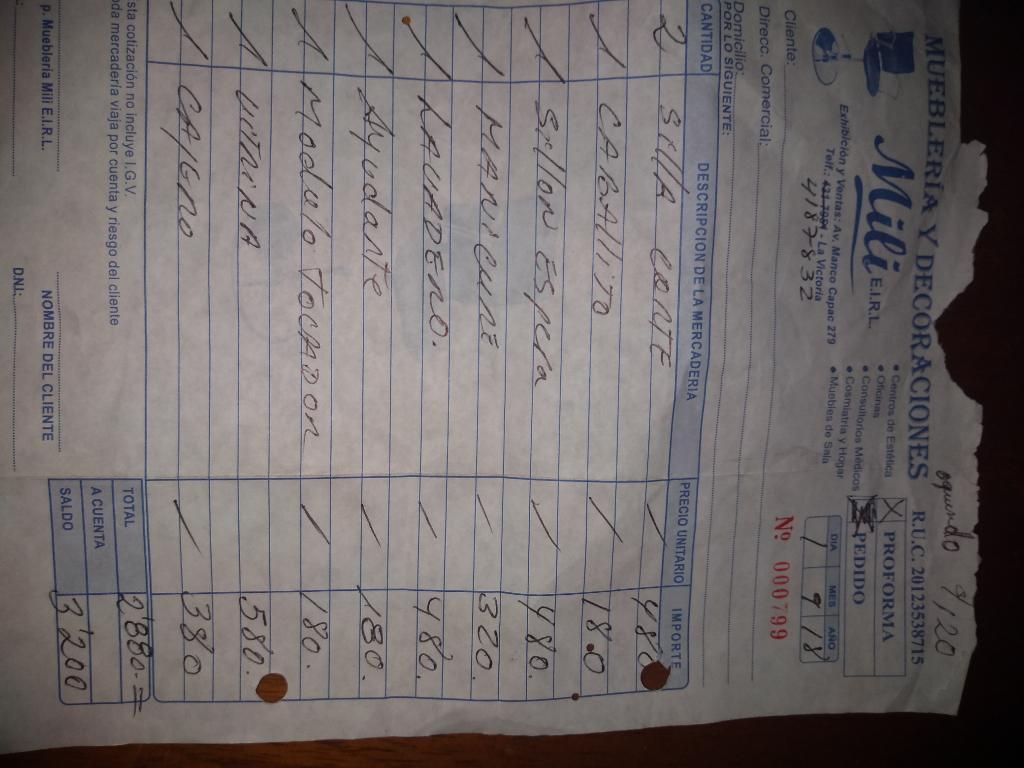 oquendo 9/20
MUEBLERÍA Y DECORACIONES R.U.C. 20123538715
Mili E.I.R.L.
• Centros de Estética
• Oficinas
• Consultorios Médicos
• Cosmiatría y Hogar
• Muebles de Sala
X PROFORMA
PEDIDO
Exhibición y Ventas: Av. Manco Capac 279
Telf.: - La Victoria
4187832
DIA MES AÑO
1 9 18
Nº 000799
Cliente:
Direcc. Comercial:
Domicilio:
POR LO SIGUIENTE:
CANTIDAD DESCRIPCION DE LA MERCADERIA PRECIO UNITARIO IMPORTE
2 Silla Corte / 480
1 CABAllito / 180
1 Sillon Espera / 480.
1 MANiCuRE / 320.
1 LAVADERO. / 480.
1 Ayudante / 180.
1 Modulo TOCADOR / 180.
1 VitRiNA 580.
1 / 380
TOTAL 2880.=
A CUENTA
SALDO 3200
sta cotización no incluye I.G.V.
da mercadería viaja por cuenta y riesgo del cliente
p. Mueblería Mili E.I.R.L.
NOMBRE DEL CLIENTE
DNI.: